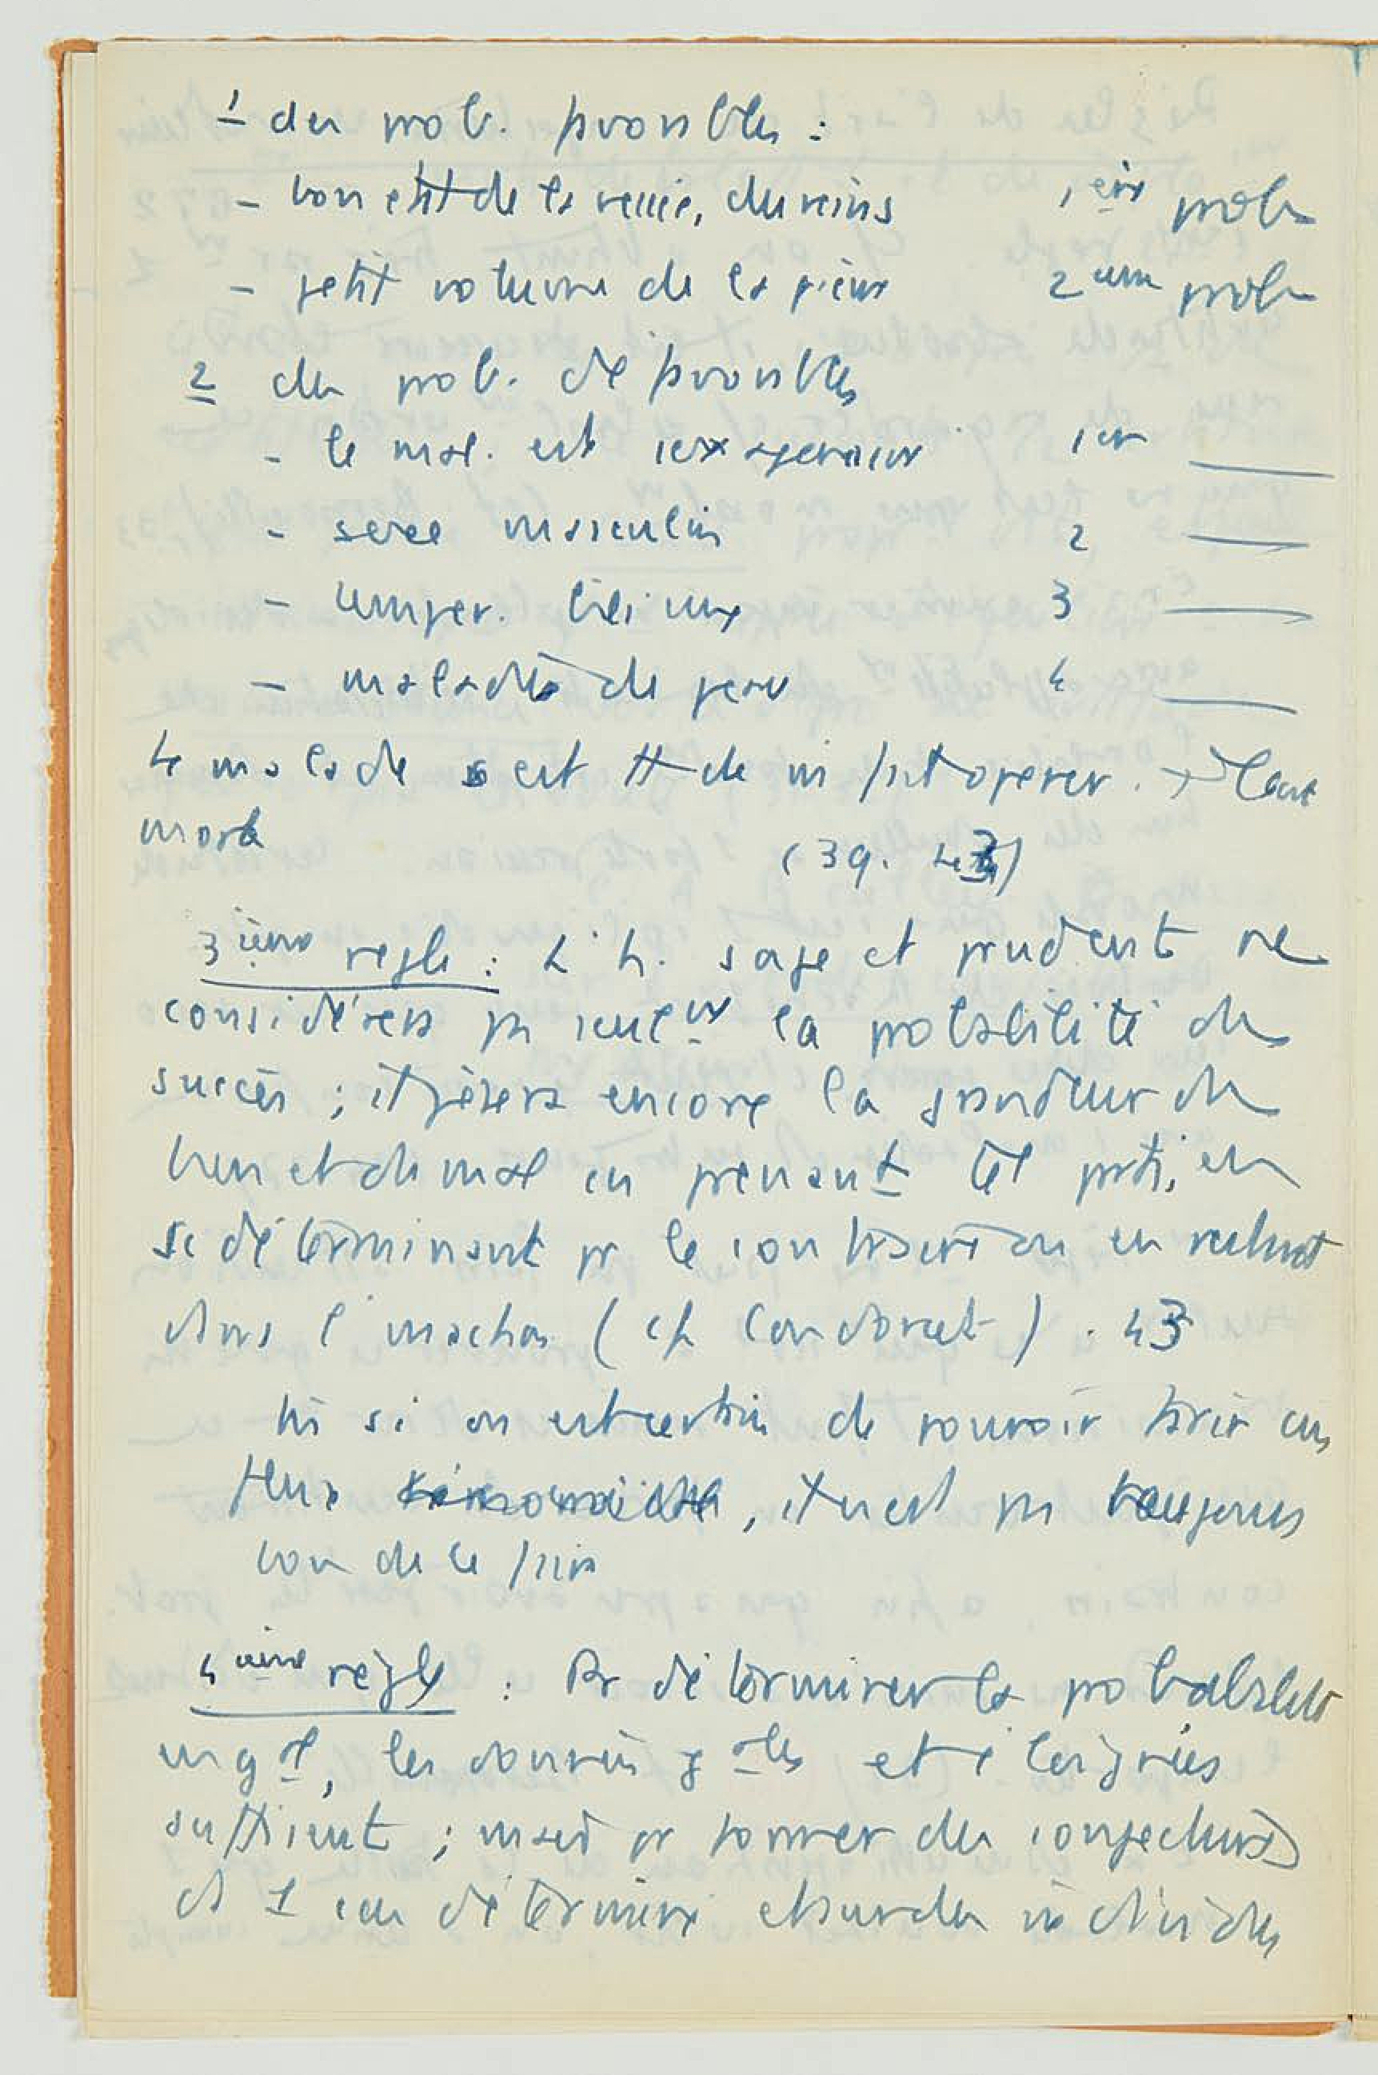 1 des prob. favorables :
- bon état de la vessie, des reins 1ère prob
- petit volume de la pierre 2ième prob
2 des prob. défavorables
- le mal. est sexagénaire 1er ___
- sexe masculin 2 ___
- temper. bilieux 3 ___
- maladie de peau 4 ___
Le malade est tt de m̂ fait opérer. →
mort
(39. 43)
3ième règle : L'h. sage et prudent ne
considérera ps seulᵗ la probabilité du
succès ; il pèsera encore la grandeur du
bien et du mal en prenant tel parti, en
se déterminant pr le contraire ou en restant
dans l'inaction (cf Condorcet). 43
m̂ si on est certain de pouvoir tirer un
, il n'est ps toujours
bon de le faire
4ième règle : Pr déterminer la probabilité
en gal, les données gales et éloignées
suffisent ; mais pr former des conjectures
ds 1 cas déterminé et sur des individus